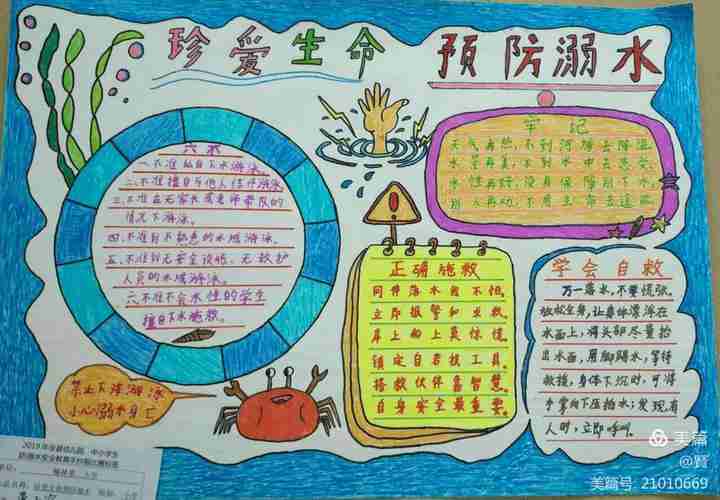 珍爱生命 预防溺水
六不
一、不准私自下水游泳。
二、不准擅自与他人结伴游泳。
三、不准在无家长或老师带队的
情况下游泳。
四、不准到不熟悉的水域游泳。
五、不准到无安全设施、无救护
人员的水域游泳。
六、不准不会水性的学生
擅自下水施救。
牢记
天气再热,不到河塘去降温
水景再美,不到水中去
水性再好,没有保障别下水,
别人再劝,不用生命去逞能
正确施救
同伴落水我不怕,
立即报警和求救。
岸上的人莫惊慌
镇定自若找工具。
搭救伙伴靠智慧。
自身安全最重要。
学会自救
万一落水,不要慌张。
放松全身,让身体漂浮在
水面上,将头部尽量抬
出水面,用脚踢水,等待
救援,身体下沉时,可将
手掌向下压拍水;发现有
人时,立即呼叫。
禁止下河游泳
小心溺水身亡
2019年
中小学生
美篇
@賢
美篇号: 21010669